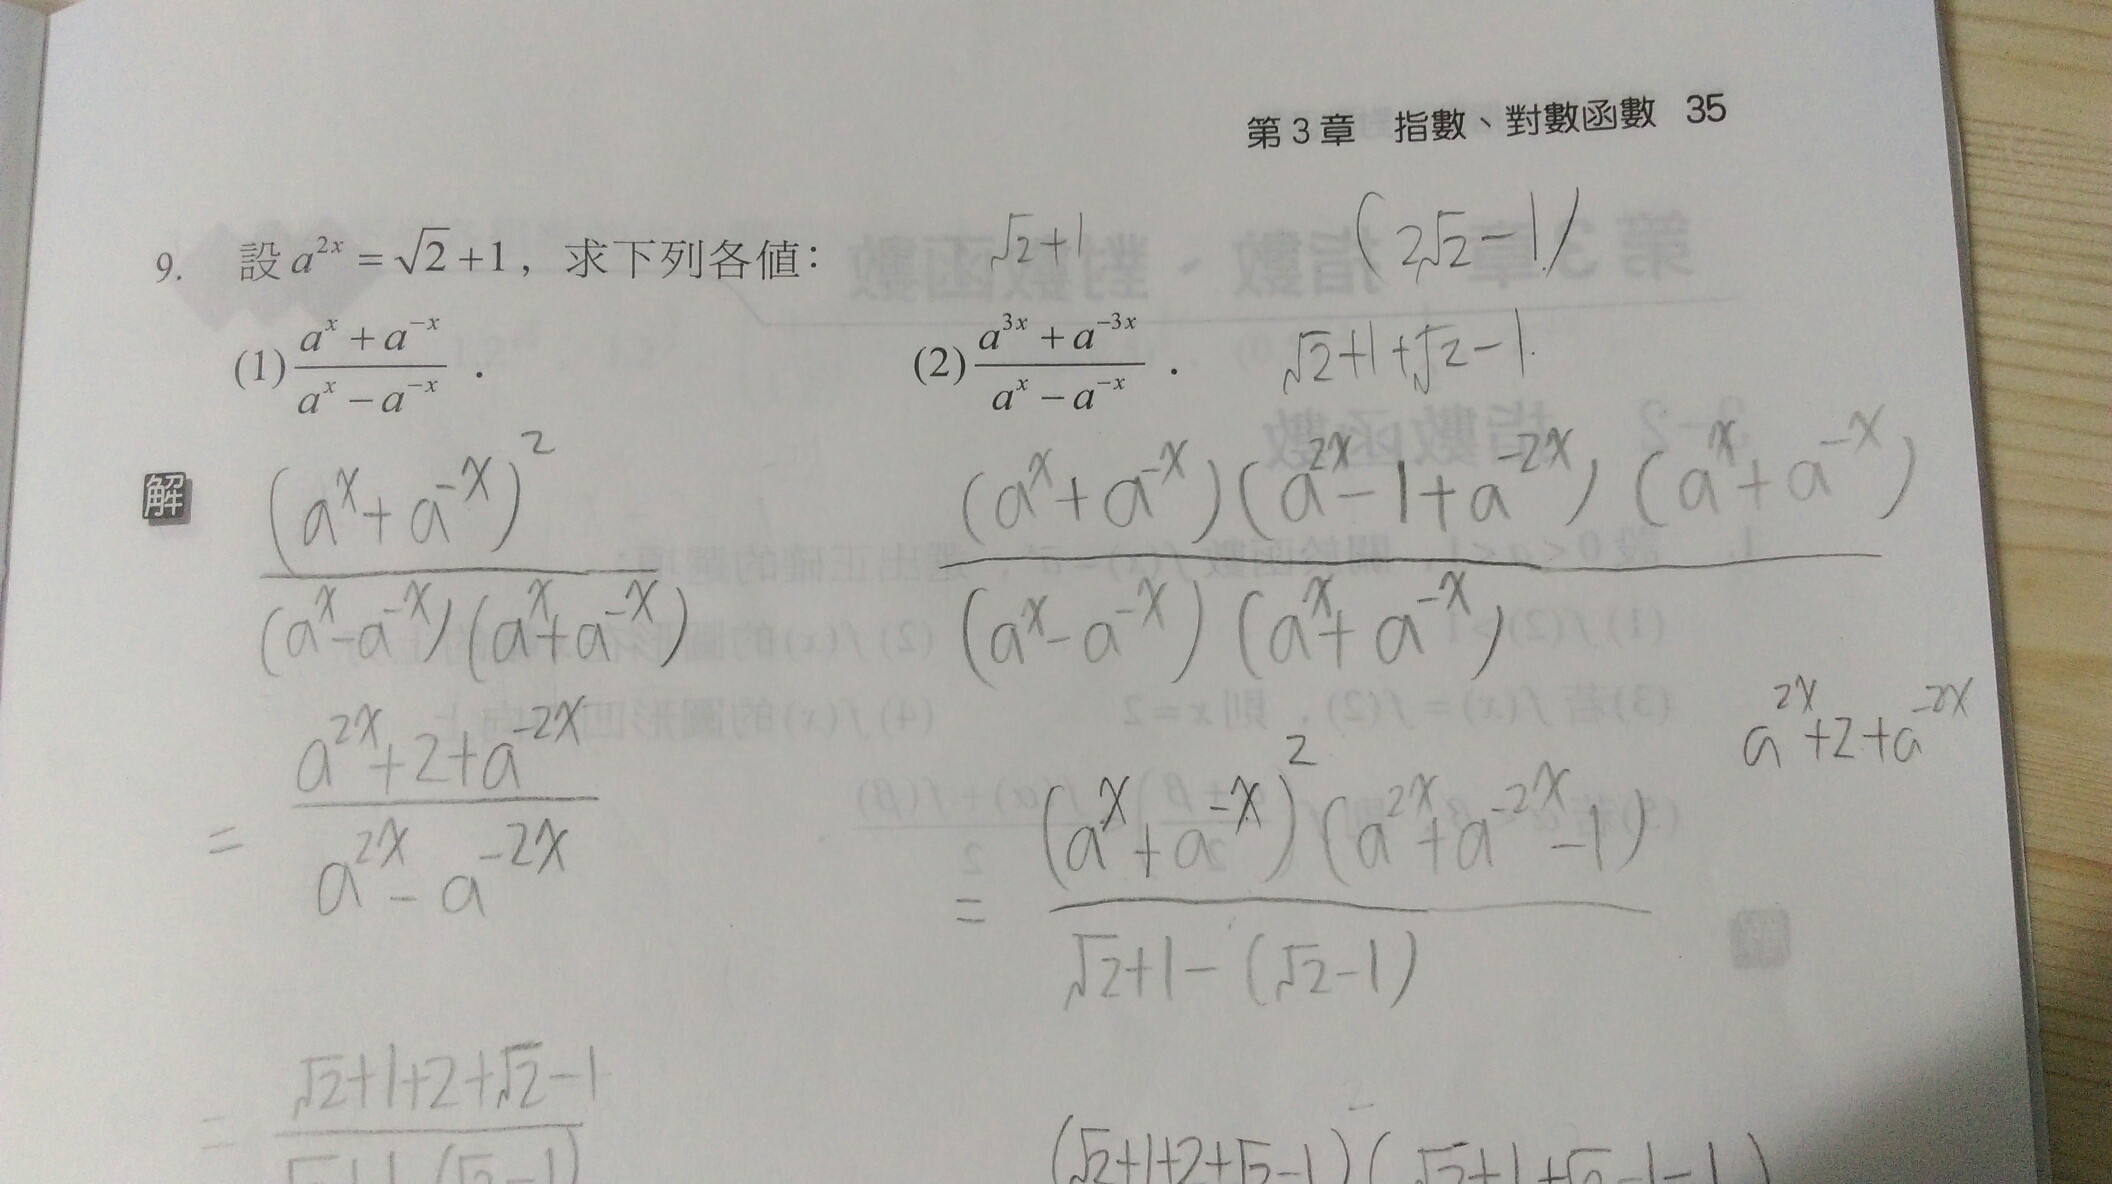 第3章 指數、對數函數 35
√2+1 (2√2-1)
9. 設 a^{2x} = √2+1，求下列各值：
(1) (a^x + a^{-x})/(a^x - a^{-x}) .
(2) (a^{3x} + a^{-3x})/(a^x - a^{-x}) .
√2+1+√2-1
解
(a^x+a^{-x})^2
(a^x-a^{-x})(a^x+a^{-x})
= (a^{2x}+2+a^{-2x})/(a^{2x}-a^{-2x})
= √2+1+2+√2-1
(a^x+a^{-x})(a^{2x}-1+a^{-2x})(a^x+a^{-x})
(a^x-a^{-x})(a^x+a^{-x})
a^{2x}+2+a^{-2x}
= (a^x+a^{-x})^2(a^{2x}+a^{-2x}-1)
√2+1-(√2-1)
(√2+1+2+√2-1)(√2+1+√2-1-1)